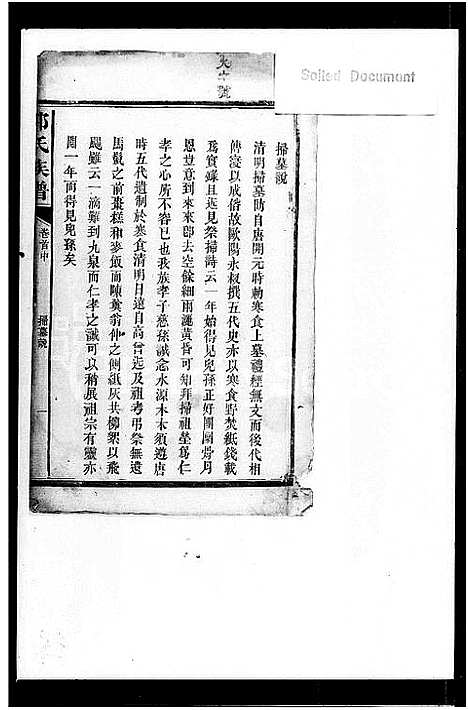 Soiled Document
掃墓說
清明掃墓昉自唐開元時勅寒食上墓禮經無文而後代相
傳浸以成俗故歐陽永叔撰五代史亦以寒食野焚紙錢載
爲實錄且近見祭掃詩云一年始得見兒孫正好團圞片月
恩豈意到來來卽去空餘細雨灑黃昏可知拜掃祖塋爲仁
孝之心所不容已也我族孝子慈孫誠念水源木本須遵唐
時五代遺制於寒食清明日遠自高曾近及祖考弔祭無遺
馬鬣之前棗糕和麥飯而陳翁仲之側紙灰共柳絮以飛
颺雖云一滴難到九泉而仁孝之誠可以稍展祖宗有靈亦
間一年而得見兒孫矣
氏族譜
卷首中
掃墓說
一